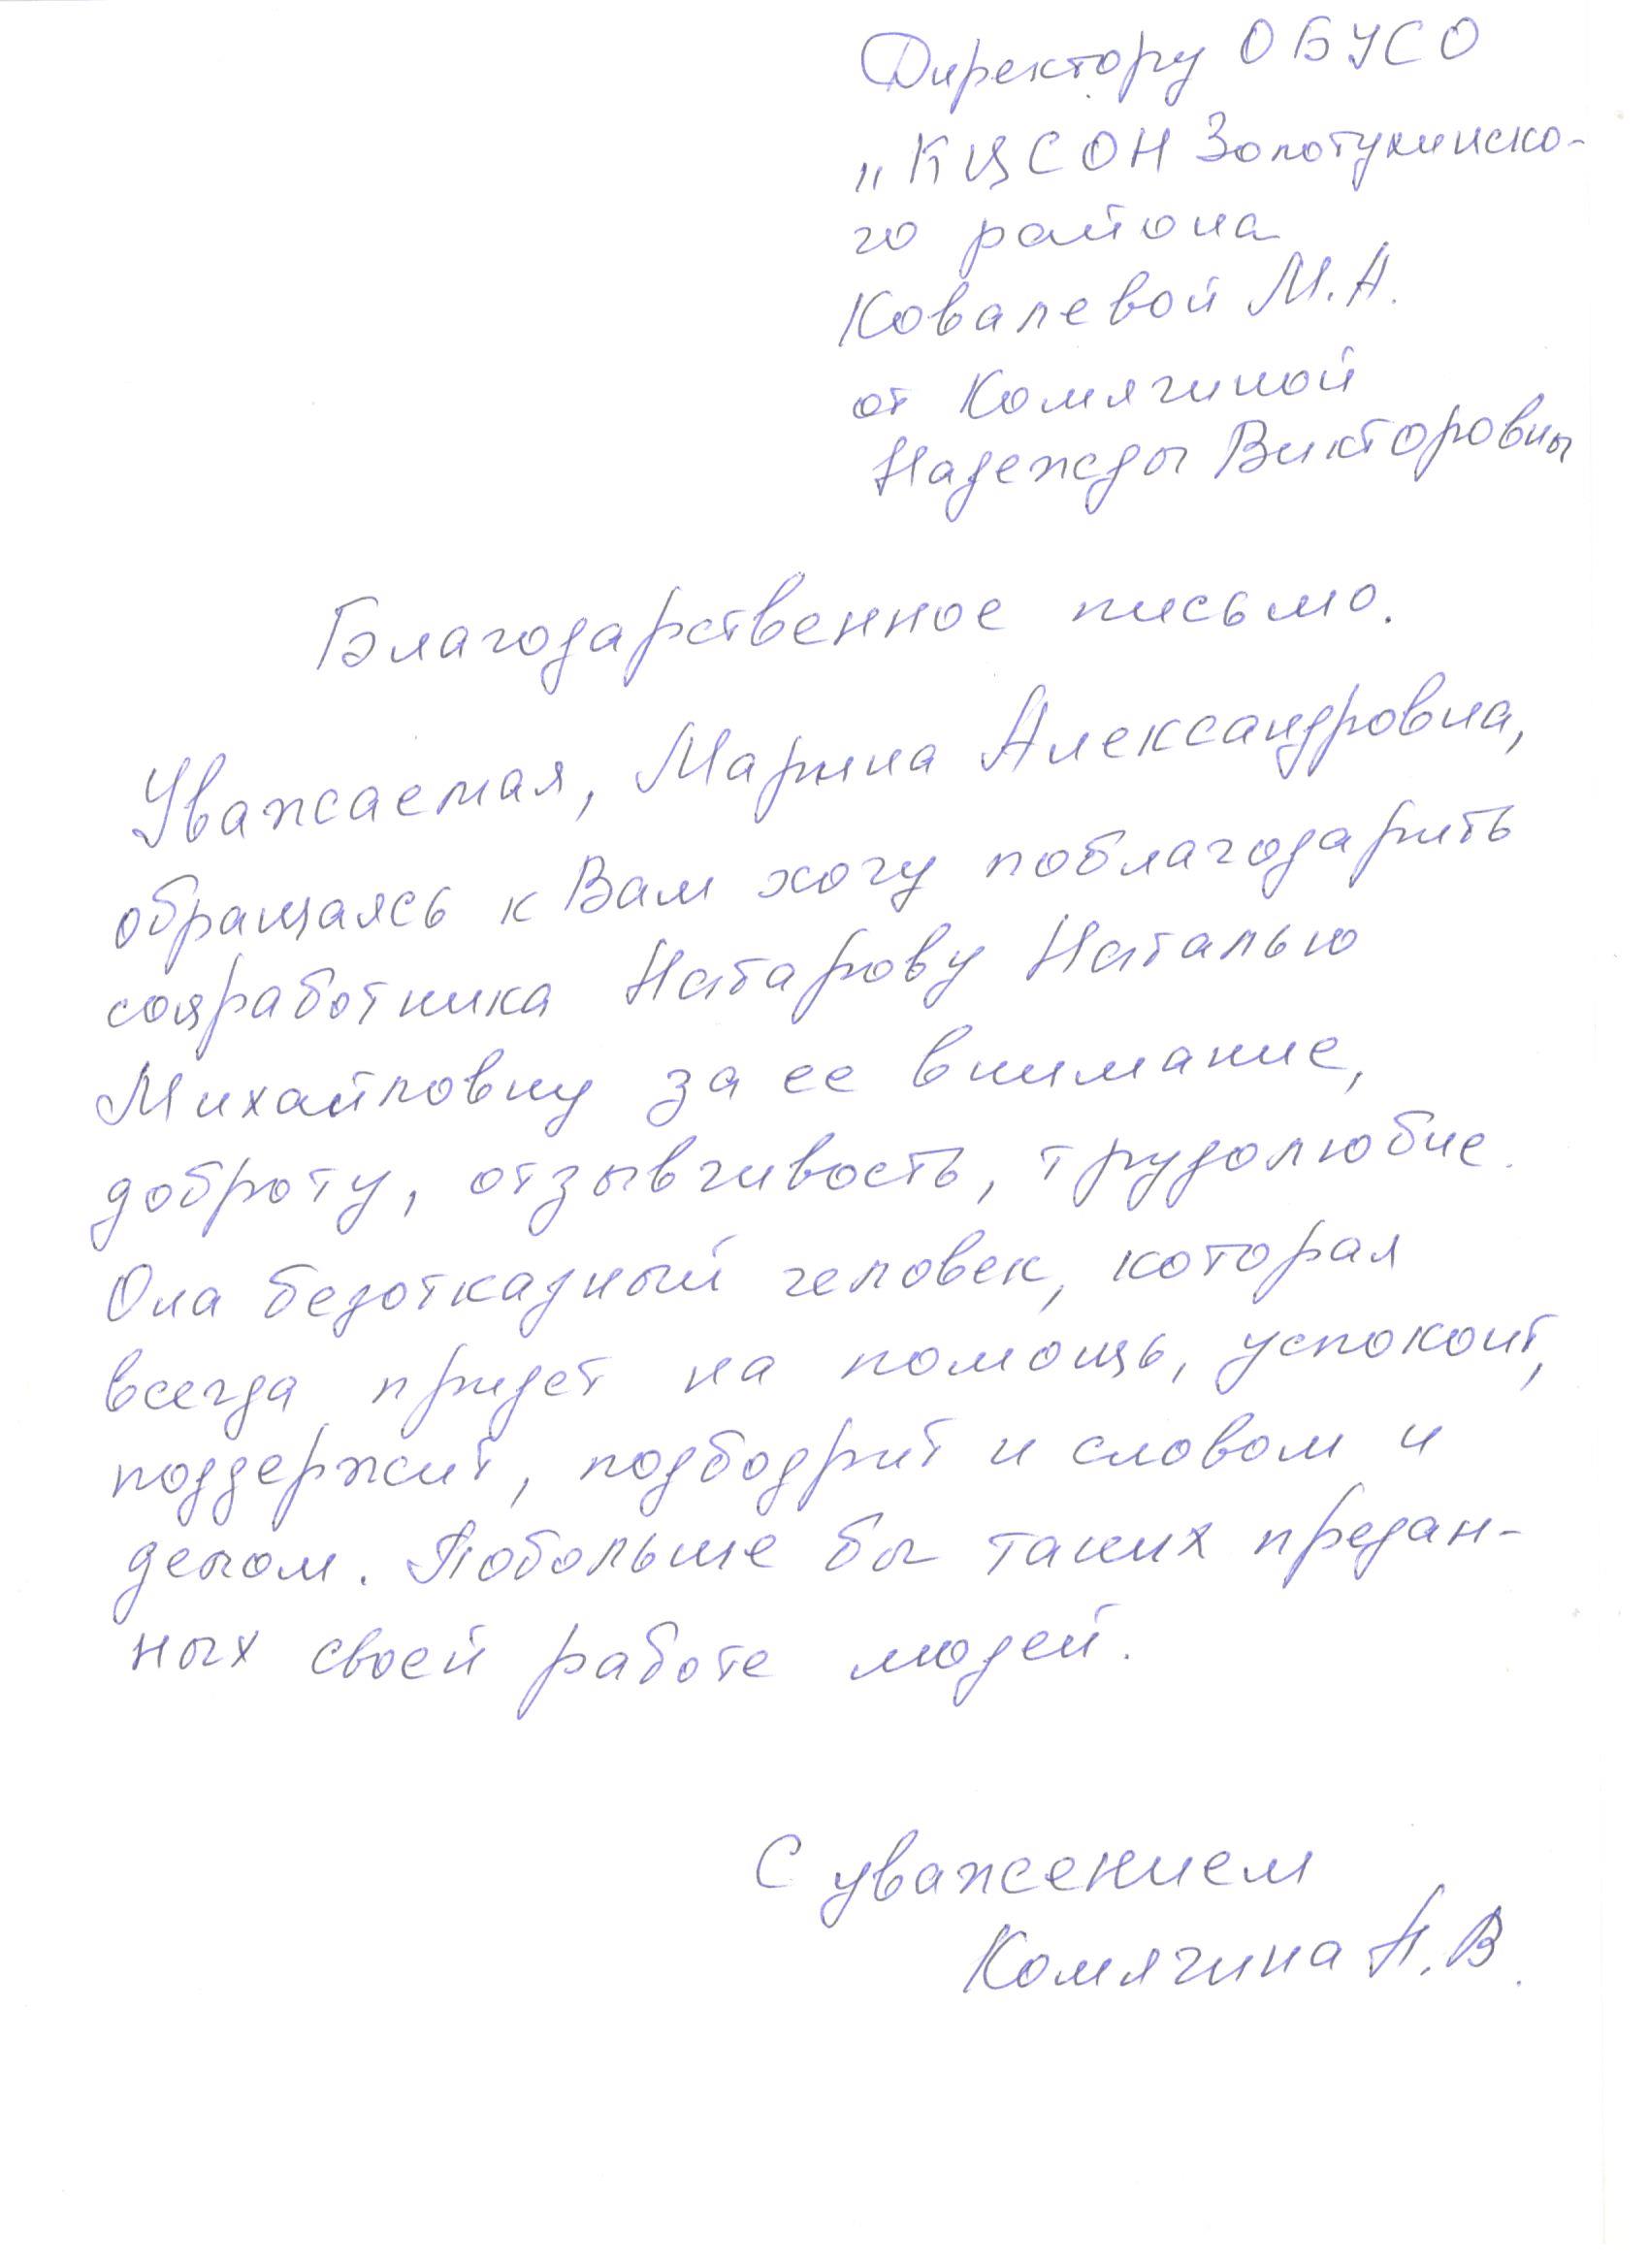 Директору ОБУСО
„КЦСОН Золотухинско-
го района
Ковалевой М.А.
от Комягиной
Надежды Викторовны
Благодарственное письмо.
Уважаемая, Марина Александровна,
обращаясь к Вам хочу поблагодарить
соцработника Натарову Наталью
Михайловну за ее внимание,
доброту, отзывчивость, трудолюбие.
Она безотказный человек, которая
всегда придет на помощь, успокоит,
поддержит, подбодрит и словом и
делом. Побольше бы таких предан-
ных своей работе людей.
С уважением
Комягина Н.В.